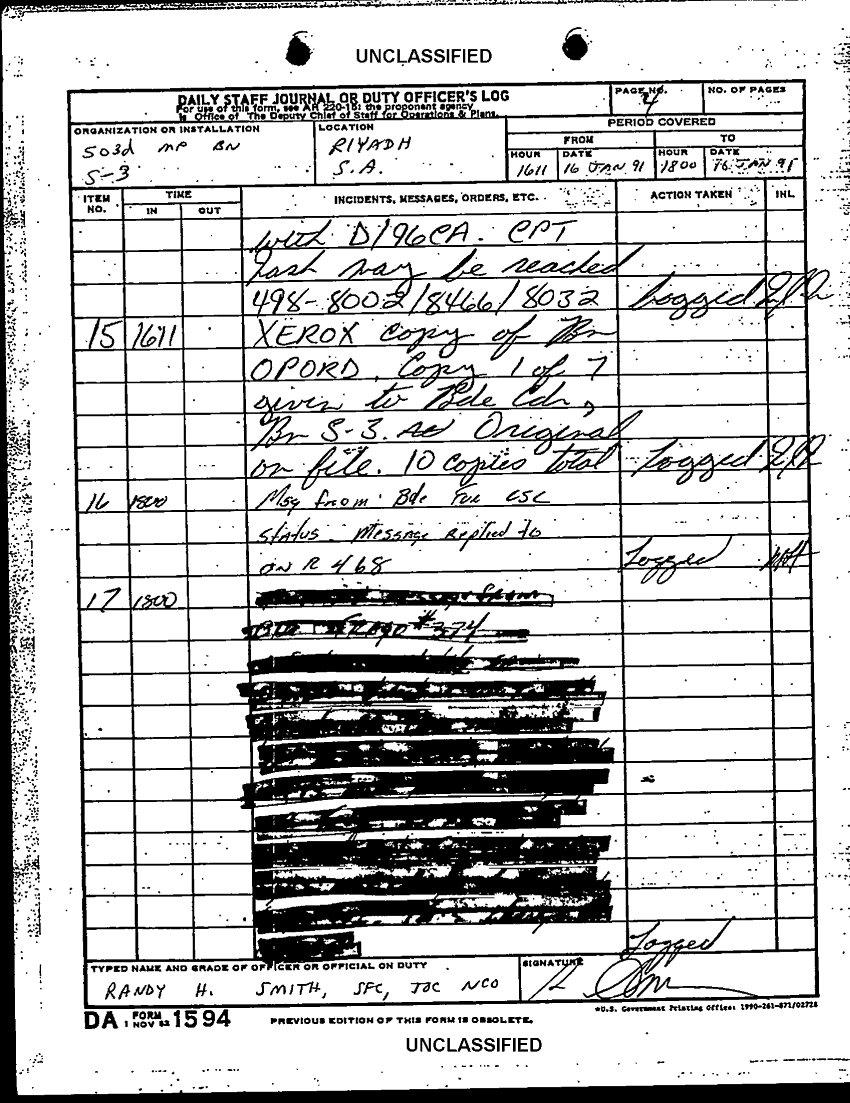 UNCLASSIFIED
DAILY STAFF JOURNAL OR DUTY OFFICER'S LOG
For use of this form, see AR 220-15; the proponent agency
is Office of The Deputy Chief of Staff for Operations & Plans.
PAGE NO.
4
NO. OF PAGES
ORGANIZATION OR INSTALLATION
503d MP BN
S-3
LOCATION
RIYADH
S.A.
PERIOD COVERED
FROM
TO
HOUR
1611
DATE
16 JAN 91
HOUR
1800
DATE
16 JAN 91
ITEM NO.
TIME
IN
OUT
INCIDENTS, MESSAGES, ORDERS, ETC.
ACTION TAKEN
INL
with D/96CA. CPT
may be reached
498-8002/8466/8032 Logged
15 1611 XEROX copy of Bn
OPORD. Copy 1 of 7
given to Bde Cdr,
Bn S-3. Original
on file. 10 copies total Logged
16 1800 Msg from Bde For CSC
status. Message Replied to
on R 468 Logged
17 1800
#374
Logged
TYPED NAME AND GRADE OF OFFICER OR OFFICIAL ON DUTY
RANDY H. SMITH, SFC, TOC NCO
SIGNATURE
DA FORM 1 NOV 62 1594
PREVIOUS EDITION OF THIS FORM IS OBSOLETE.
*U.S. Government Printing Office: 1990-261-871/02728
UNCLASSIFIED